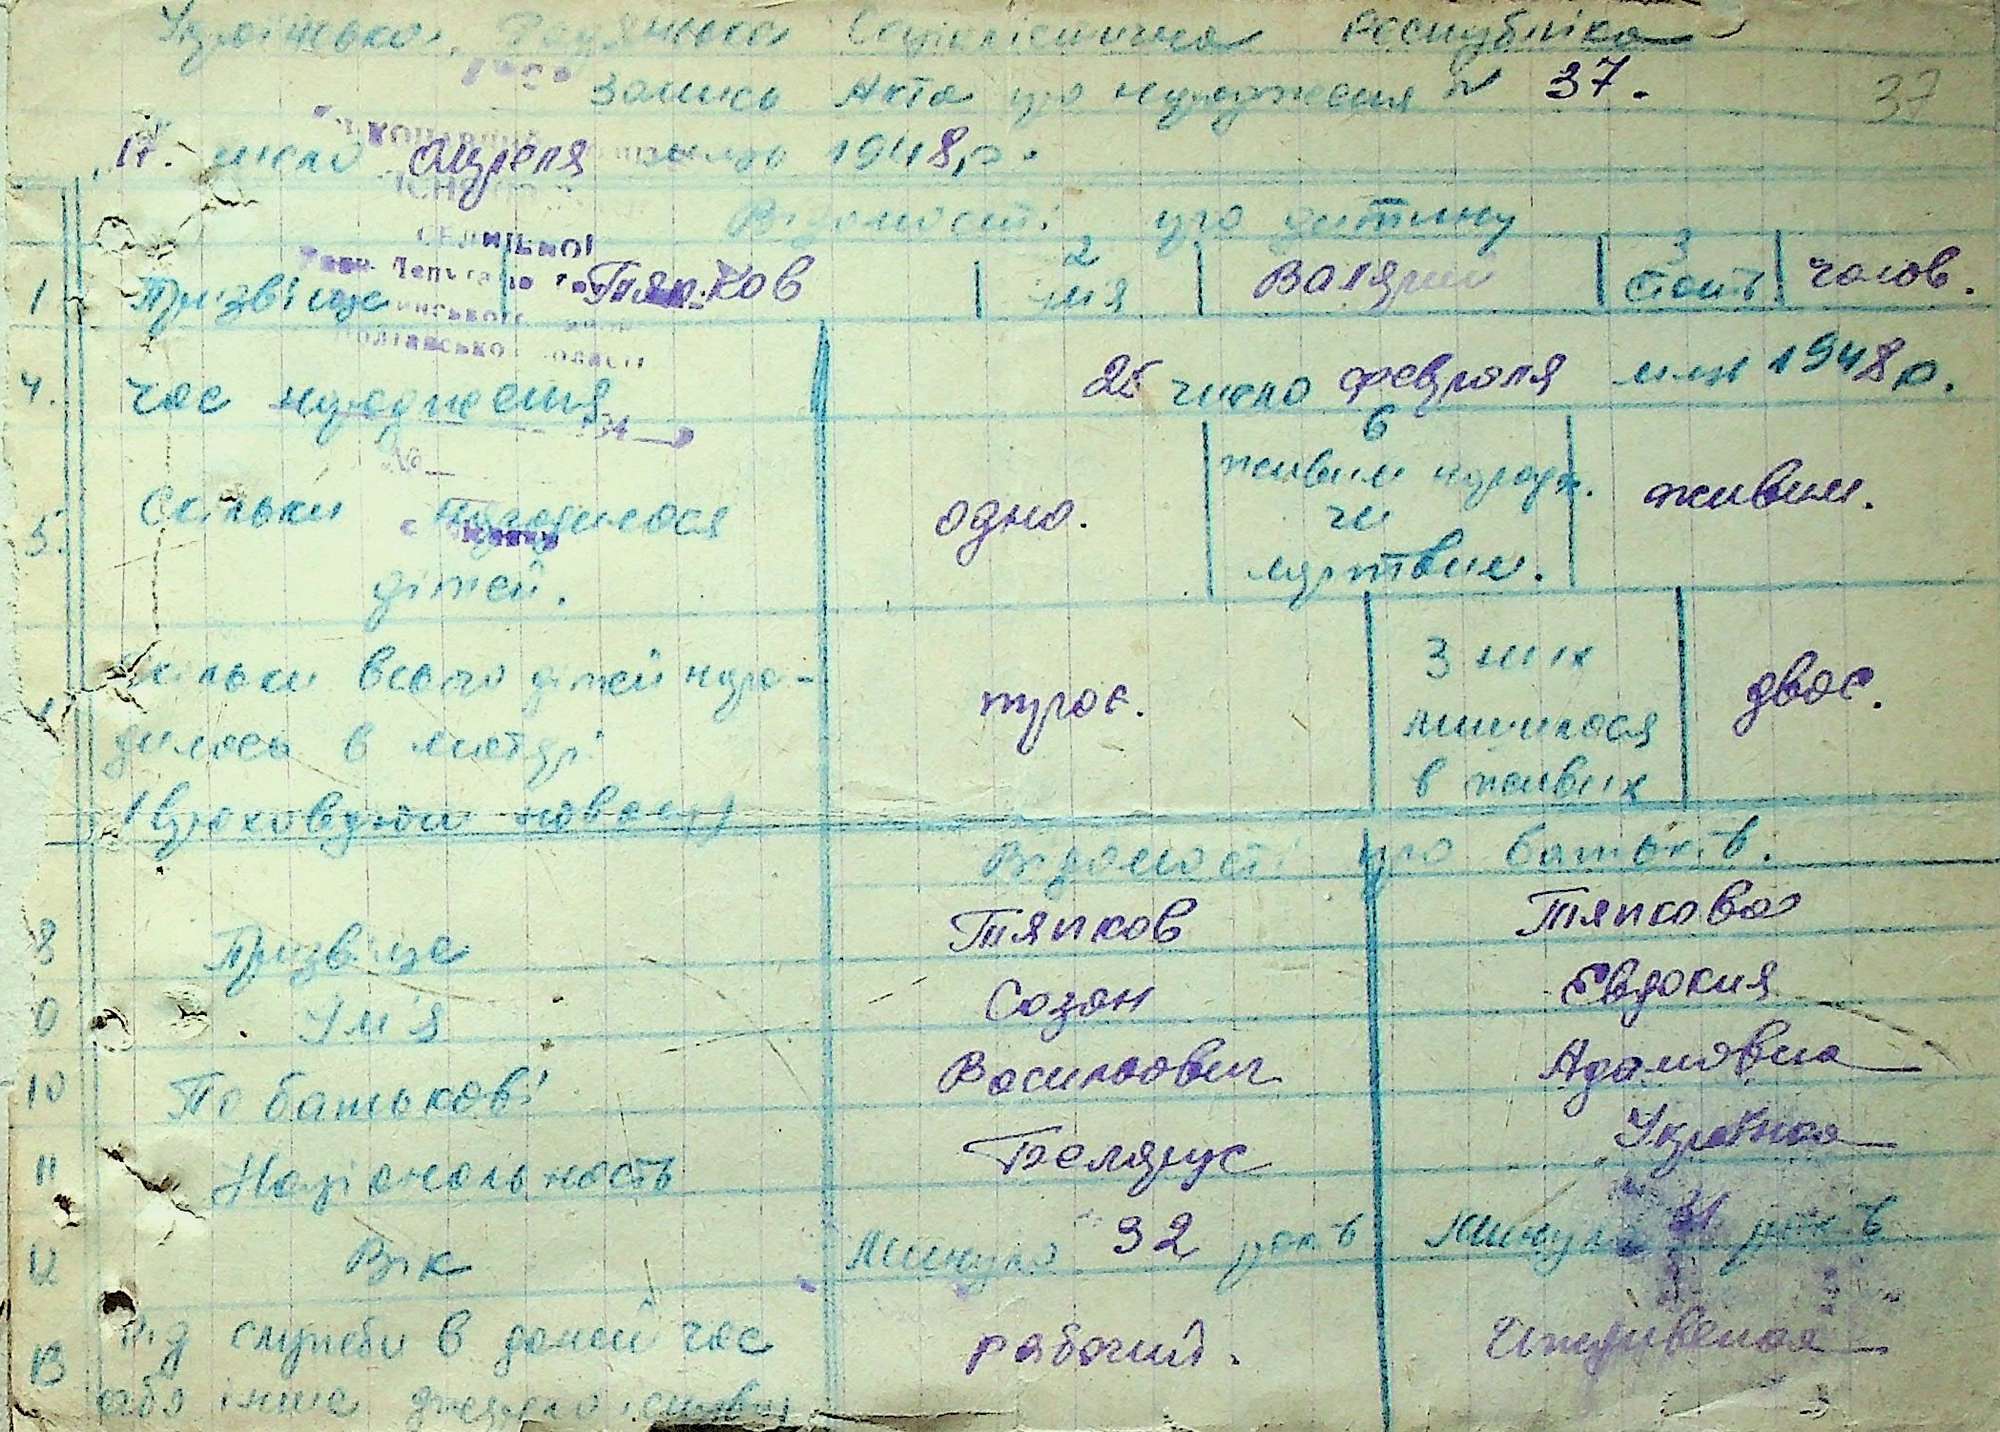 Українська Радянська Соціалістична Республіка
Запись Акта про народження № 37.
37
17. число апреля м-ця 1948 р.
Відомості про дитину
СЕЛИЩНОЇ
1 Прізвище Тяпков 2 імя Валярий 3 стать чолов.
Полтавської області
4. Час народження 25 число февраля м-ця 1948 р.
194
№
5. Скільки народилося дітей. одно. 6 живим народж. чи мертвим. живим.
Скільки всього дітей наро-
дилось в матері
(враховуючи новонар) троє. З них лишилося в живих двоє.
Відомості про батьків.
8 Прізвище Тяпков Тяпкова
9 Ім'я Созон Евдокия
10 По батькові Васильович Адамовна
11 Національность Белярус Українка
12 Вік Минуло 32 років Минуло 31 років
13 Від служби в даний час рабочий. Иждивеная
або інше джерело існував